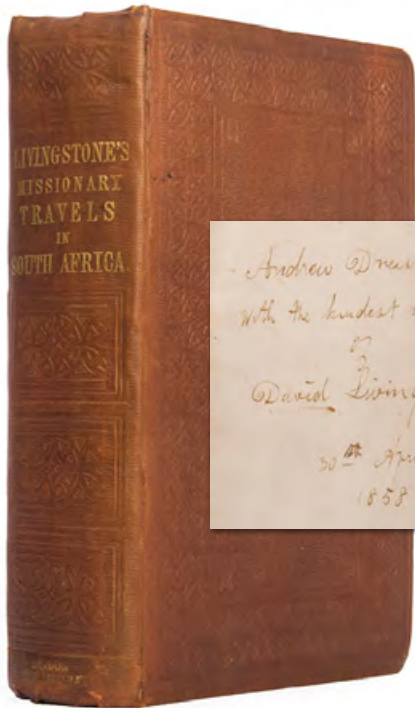 LIVINGSTONE'S
MISSIONARY
TRAVELS
IN
SOUTH AFRICA.
Andrew
with the kindest
of
David Livin
30th Apr
1858